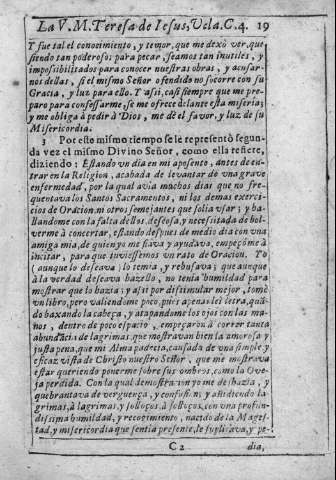 La V. M. Teresa de Iesus, Vela. C. 4. 19
Y fue tal el conocimiento, y temor, que me dexò ver, que
siendo tan poderosos para pecar, seamos tan inutiles, y
impossibilitados para conocer nuestras obras, y acusar-
nos dellas, si el mismo Señor ofendido no socorre con su
Gracia, y luz para ello. Y assi, casi siempre que me pre-
paro para confessarme, se me ofrece delante esta miseria;
y me obliga à pedir à Dios, me dè el favor, y luz de su
Misericordia.
3 Por este mismo tiempo se le representò segun-
da vez el mismo Divino Señor, como ella refiere,
diziendo: Estando un dia en mi aposento, antes de en-
trar en la Religion, acabada de levantar de una grave
enfermedad, por la qual avia muchos dias que no fre-
quentava los Santos Sacramentos, ni los demàs exerci-
cios de Oracion, ni otros semejantes que solia usar; y ha-
llandome con la falta dellos, deseosa, y necessitada de bol-
verme à concertar, estando despues de medio dia con una
amiga mia, de quien yo me fiava y ayudava, empeçòme à
incitar, para que tuviessemos un rato de Oracion. Yo
(aunque lo deseava) lo temia, y rehusava; que aunque
à la verdad deseava hazello, no tenia humildad para
mostrar que lo hazia; y assi por dissimular mejor, tomè
un libro, pero valiendome poco, pues apenas leì letra, quã-
do baxando la cabeça, y atapandome los ojos con las ma-
nos, dentro de poco espacio, empeçaron à correr tanta
abundãcia de lagrimas, que mostravan bien la amorosa y
justa pena, que mi Alma padecia, causada de una simple y
eficaz vista de Christo nuestro Señor, que me mostrava
estar queriendo ponerme sobre sus ombros, como la Ove-
ja perdida. Con la qual demostracion yo me deshazia, y
quebrantava de verguença, y confusion; y añidiendo la-
grimas, à lagrimas, y solloços, à solloços, con una profun-
dissima humildad, y recogimiento, nacido de la Mages-
tad, y misericordia que sentia presente, le suplicava, y pe-
C 2 dia,